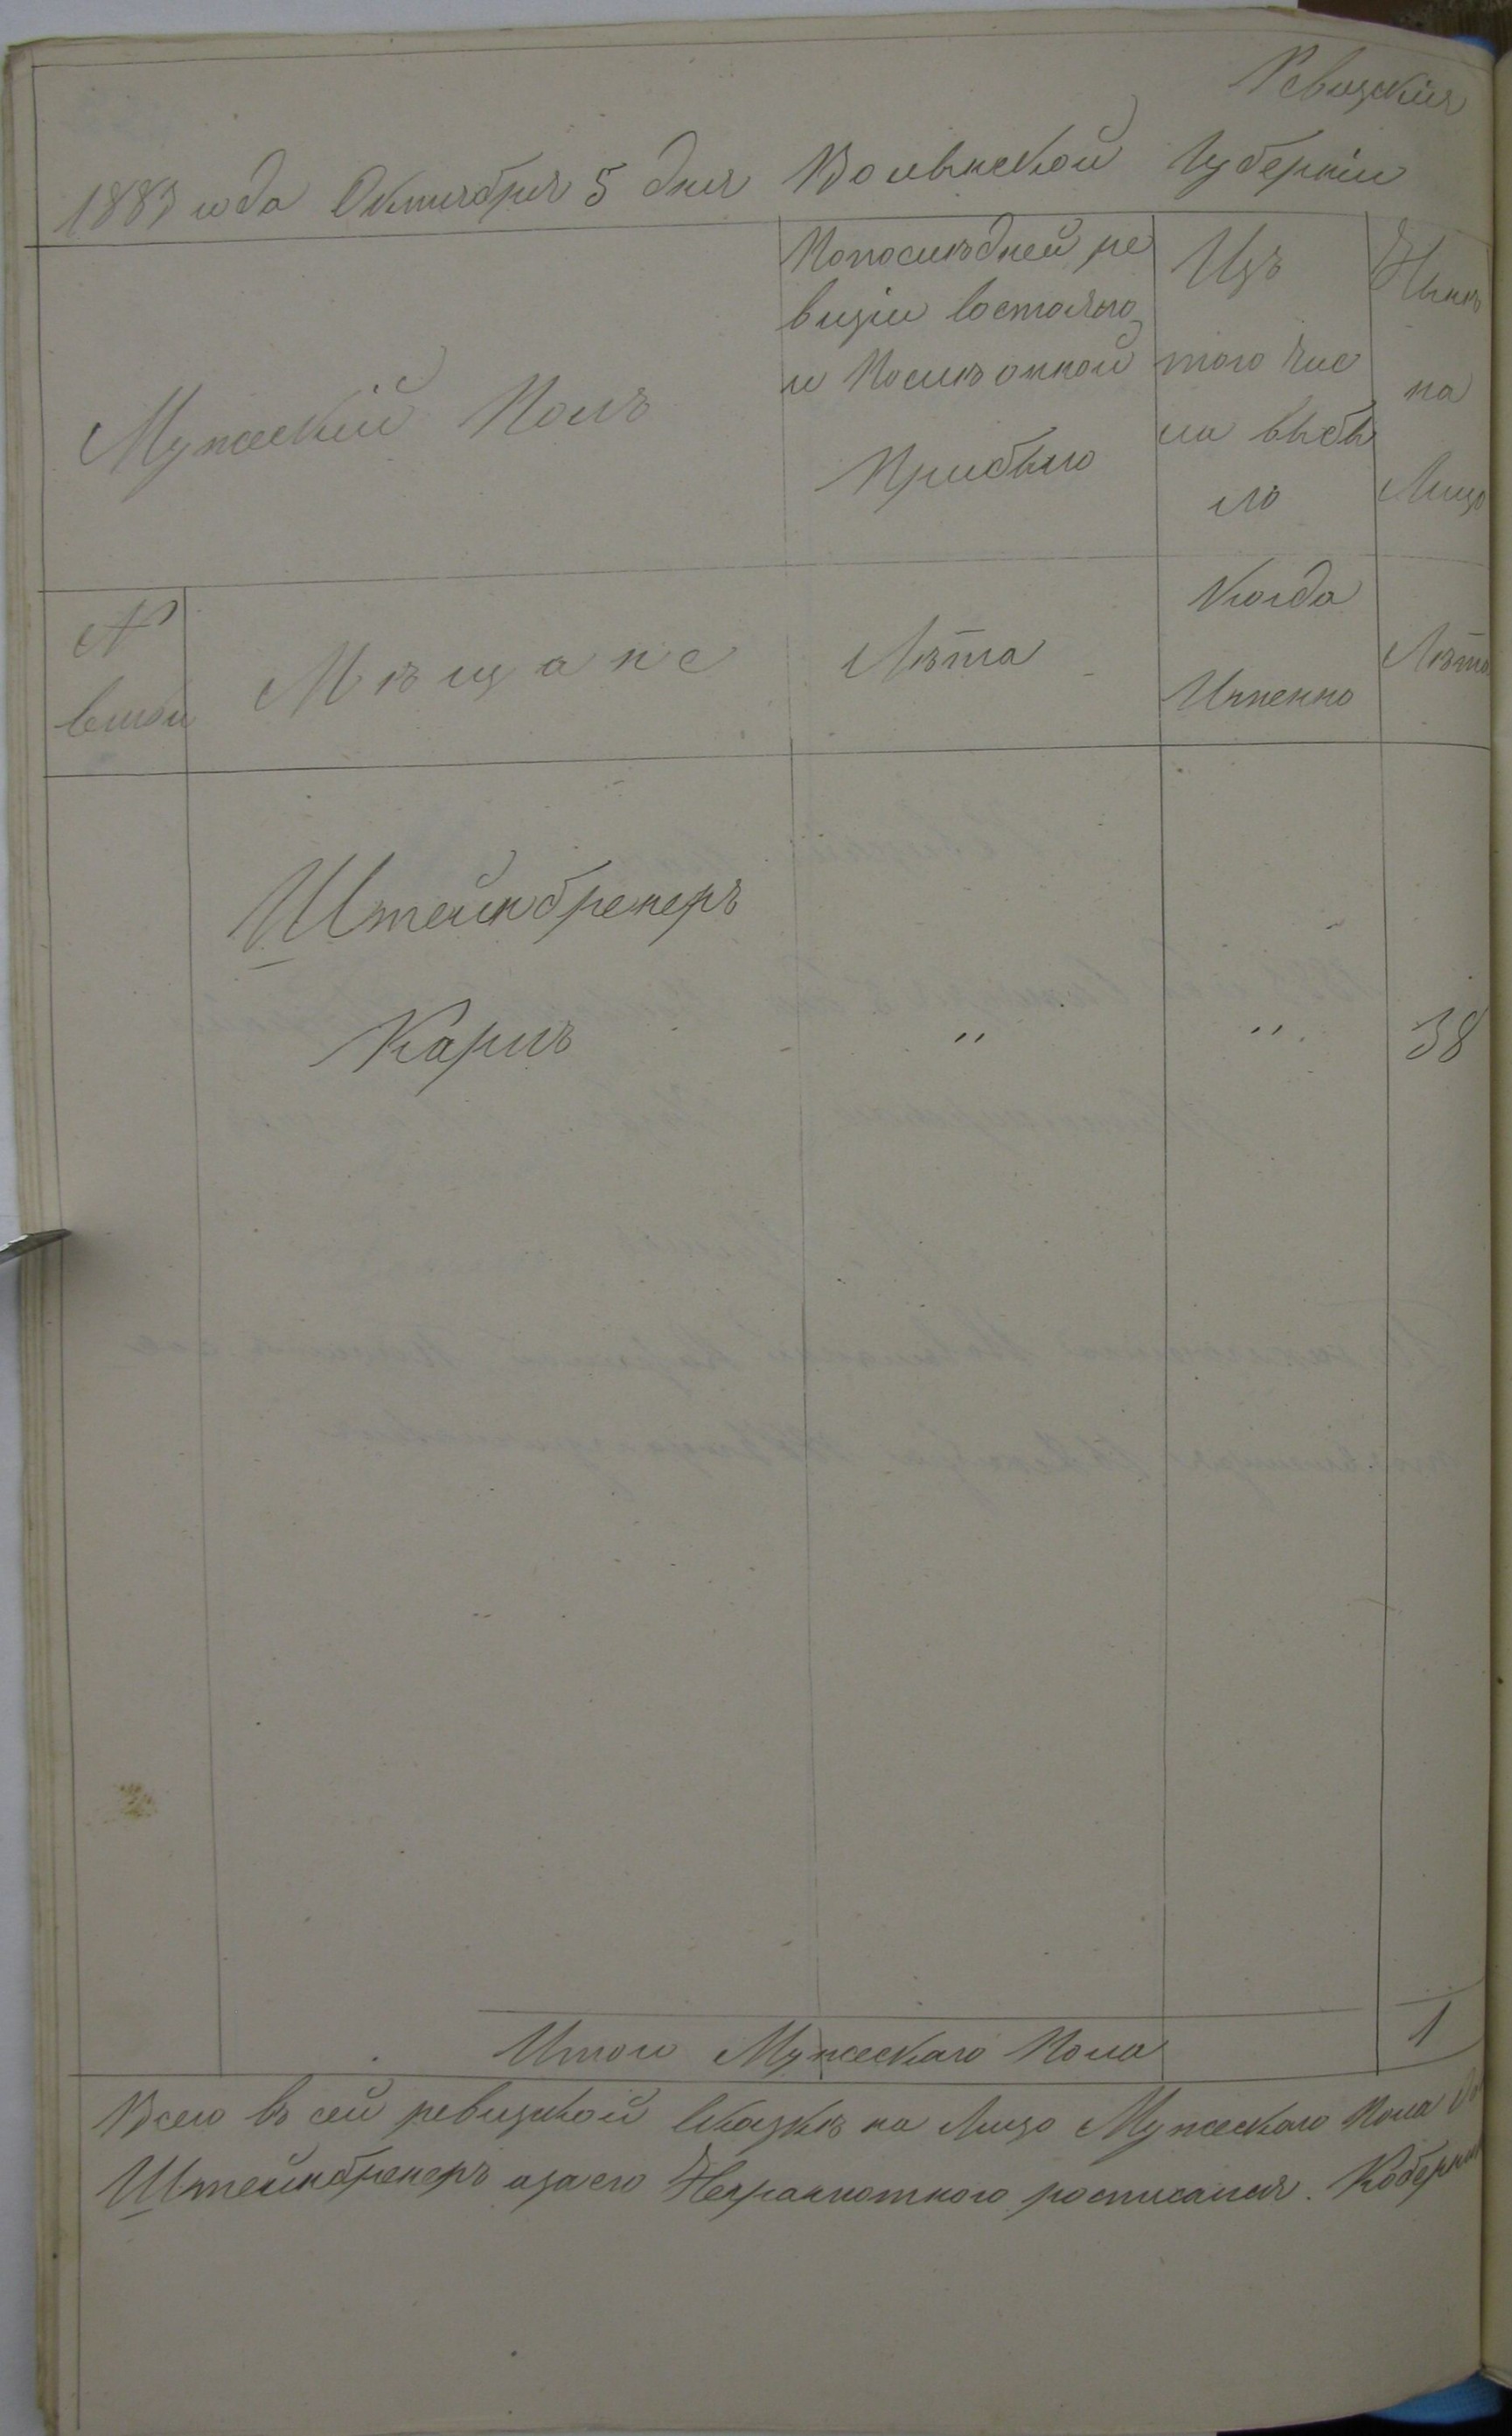 Ревизкія
1883 года Октября 5 дня Волынской Губерніи
Мужескій Полъ
Попослѣдней ре
визіи
и Послѣ онной
Прибыло
Изъ
того чис
ла выбы
ло
Нынѣ
на
Лицо
№
Мѣщане
Лѣта
Когда
Имменно
Лѣта
Штейнбренеръ
Карлъ " " 38
Итого Мужескаго Пола 1
Всего въ сей ревизкой Сказкѣ на Лицо Мужескаго Пола
Штейнбренеръ азаего Неграммотного росписался.